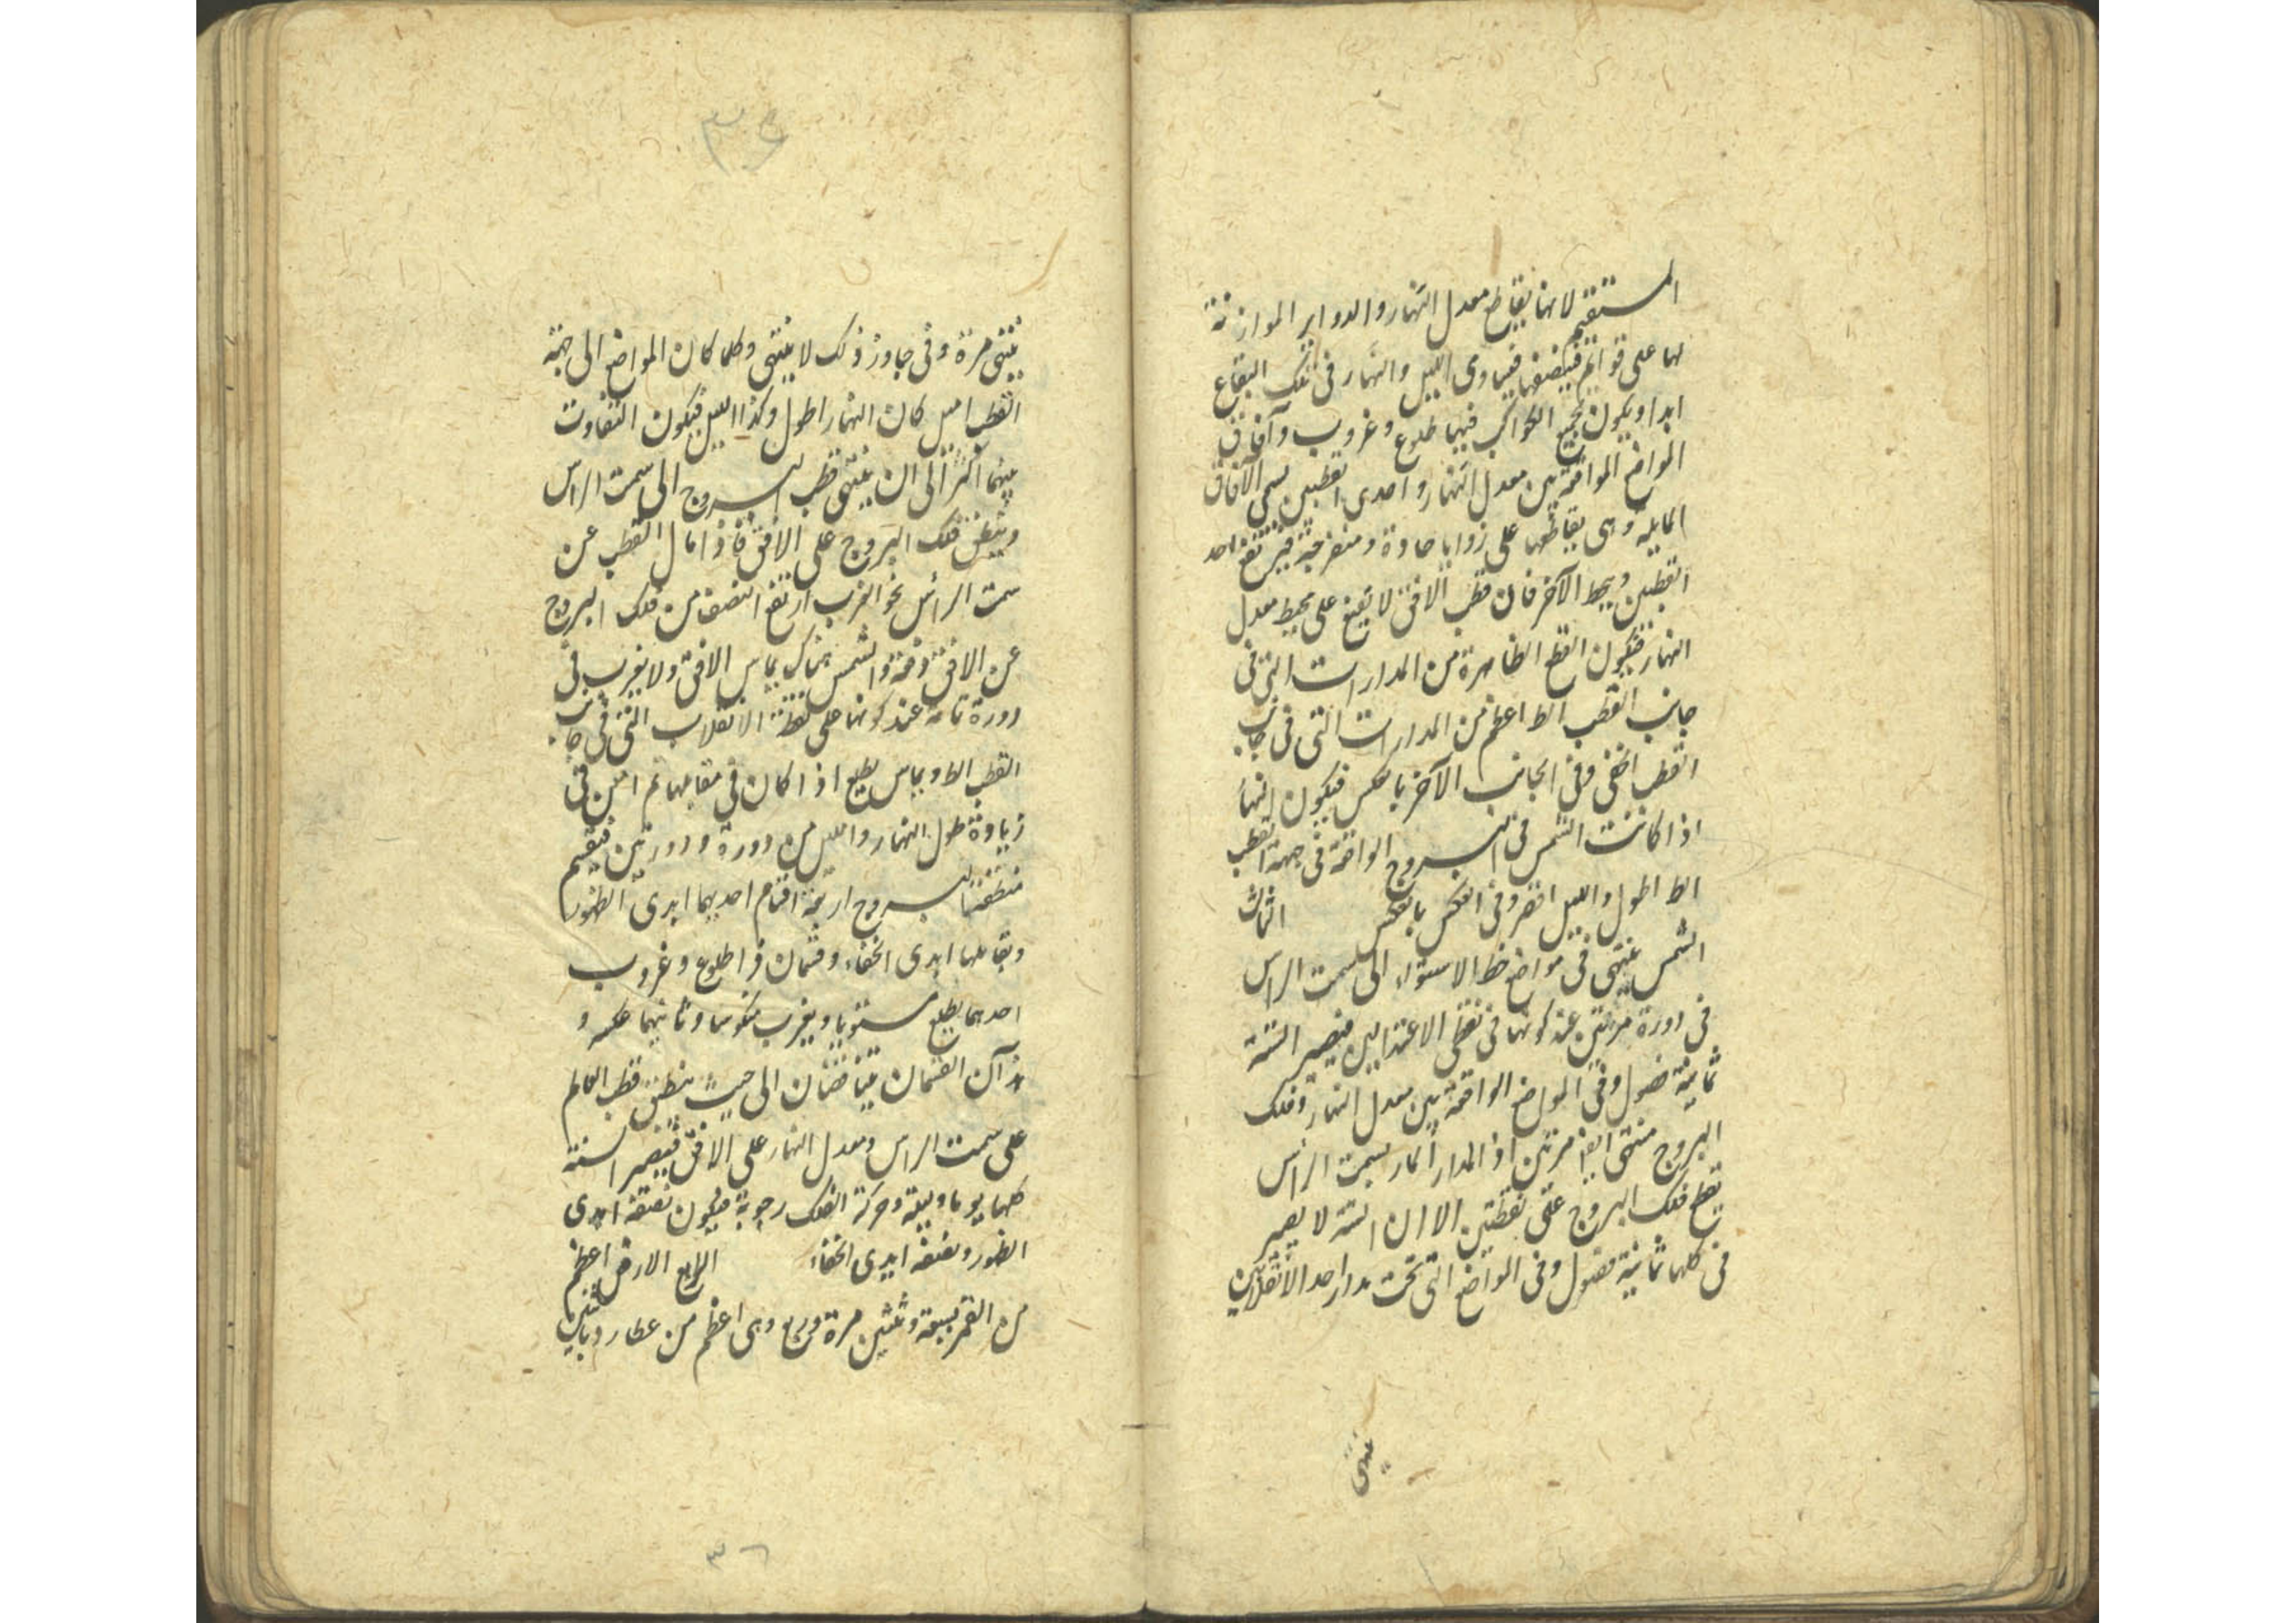 المستقيم لانها يقاطع معدل النهار والدواير الموازنة
لها على قوائم فينصفها فيساوى الليل والنهار فى تلك البقاع
ابدا ويكون لجميع الكواكب فيها طلوع وغروب وآفاق
المواضع الواقعة بين معدل النهار واحدى القطبين يسمى الآفاق
المايلة وهى يقاطعها على زوايا حادة ومنفرجة فيرتفع احد
القطبين ويحط الآخر فان قطب الافق لا يقع على محيط معدل
النهار فيكون القطع الظاهرة من المدارات التى فى
جانب القطب الظ اعظم من المدارات التى فى جانب
القطب الخفى وفى الجانب الآخر بالعكس فيكون النهار
اذا كانت الشمس فى البروج الواقعة فى جهة القطب
الظ اطول والليل اقصر وفى العكس بالعكس الثالث
الشمس ينتهى فى مواضع خط الاستواء الى سمت الراس
فى دورة مرتين عند كونها فى نقطى الاعتدالين فيصير السنة
ثمانية فصول وفى المواضع الواقعة بين معدل النهار وفلك
البروج منتهى ايضا مرتين اذ المدار المار بسمت الراس
يقطع فلك البروج على نقطتين الا ان السنة لا يصير
فى كلها ثمانية فصول وفى المواضع التى تحت مدار احد الانقلابين
ينتهى
٣٦
ينتهى مرة وفى جاوز ذلك لا ينتهى وكلما كان المواضع الى جهة
القطب اميل كان النهار اطول وكذا الليل فيكون التفاوت
بينهما اكثر الى ان ينتهى قطب البروج الى سمت الراس
وينطبق فلك البروج على الافق فاذا مال القطب عن
سمت الراس نحو الغرب ارتفع النصف من فلك البروج
عن الافق دفعة والشمس هناك يماس الافق ولا يغرب فى
دورة تامة عند كونها على نقطة الانقلاب التى فى جانب
القطب الظ ويماس يطلع اذا كان فى مقابلها ثم امعن فى
زيادة طول النهار والليل من دورة ودورتين فينقسم
منطقة البروج اربعة اقسام احديها ابدى الظهور
ويقابلها ابدى الخفاء وقسمان ذوا طلوع وغروب
احدهما يطلع مستويا ويغرب منكوسا وثانيهما عكسه و
هذان القسمان يتناقضان الى حيث ينطبق قطب العالم
على سمت الراس ومعدل النهار على الافق فيصير السنة
كلها يوما وليلة وحركة الفلك رحوية فيكون نصفه ابدى
الظهور ونصفه ابدى الخفاء الرابع الارض اعظم
من القمر بسبعة وثلثين مرة وربع وهى اعظم من عطارد
٣٦